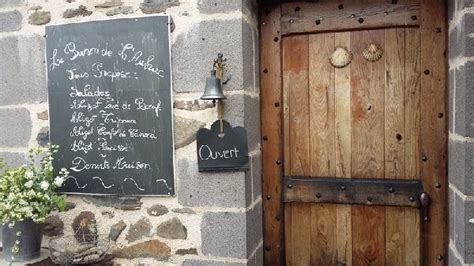 Le Buron de l'Aubrac
Vous Propose:
Salades
Aligot Pavé de Boeuf
Aligot Tripoux
Aligot Confit de Canard
Aligot Saucisse
Desserts Maison
Ouvert